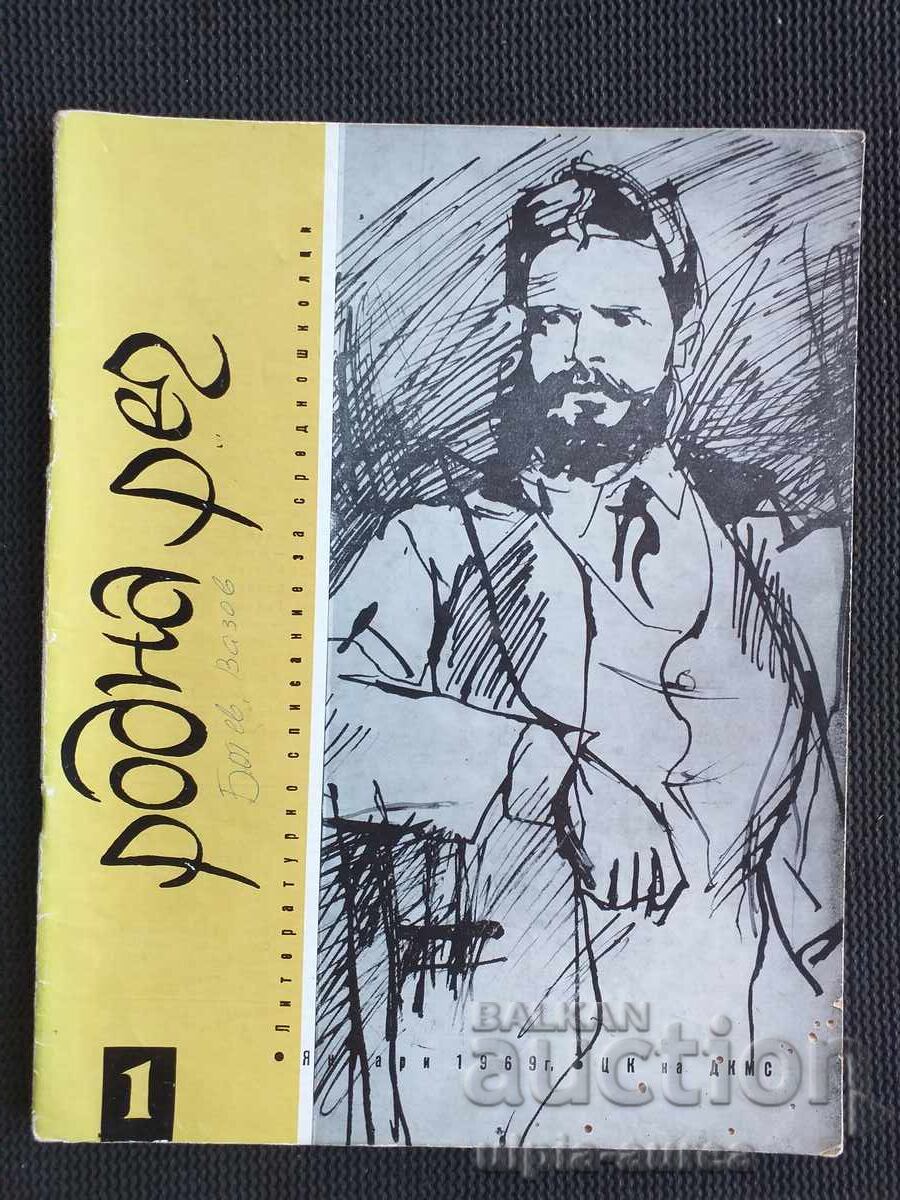 родна реч
Ботев, Вазов
• Литературно списание за средношколци
1
Януари 1969 г. • ЦК на ДКМС
BALKAN
auction
ulpia-aurea